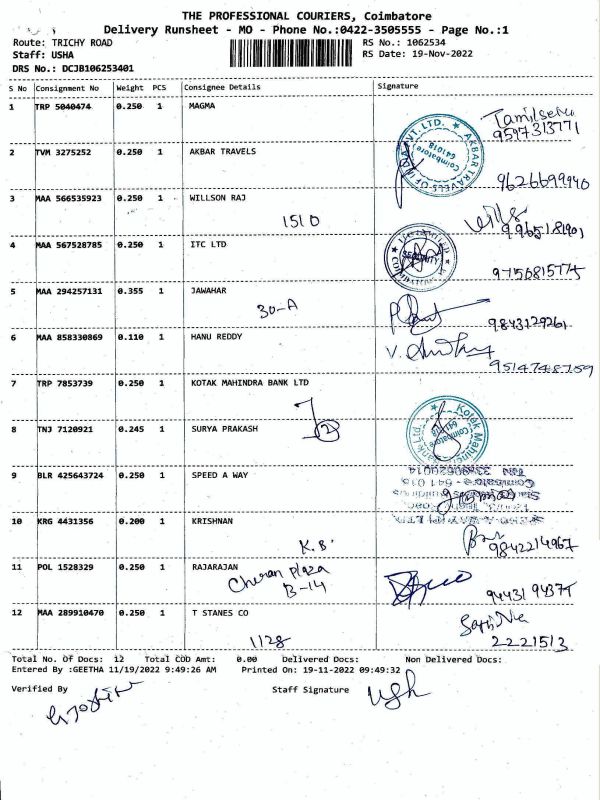 THE PROFESSIONAL COURIERS, Coimbatore
Delivery Runsheet - MO - Phone No.:0422-3505555 - Page No.:1
Route: TRICHY ROAD RS No.: 1062534
Staff: USHA RS Date: 19-Nov-2022
DRS No.: DCJB106253401
S No Consignment No Weight PCS Consignee Details Signature
1 TRP 5040474 0.250 1 MAGMA
9597313771
2 TVM 3275252 0.250 1 AKBAR TRAVELS
9626699940
3 MAA 566535923 0.250 1 WILLSON RAJ
1510 9965181901
4 MAA 567528785 0.250 1 ITC LTD
SECURITY
9756815775
5 MAA 294257131 0.355 1 JAWAHAR
30-A 9843129261
6 MAA 858330869 0.110 1 HANU REDDY
9514748759
7 TRP 7853739 0.250 1 KOTAK MAHINDRA BANK LTD
8 TNJ 7120921 0.245 1 SURYA PRAKASH
2
9 BLR 425643724 0.250 1 SPEED A WAY
10 KRG 4431356 0.200 1 KRISHNAN
K.B. 9842214967
11 POL 1528329 0.250 1 RAJARAJAN
Cheran Plaza
B-14 9443194375
12 MAA 289910470 0.250 1 T STANES CO
1128 2221513
Total No. Of Docs: 12 Total COD Amt: 0.00 Delivered Docs: Non Delivered Docs:
Entered By :GEETHA 11/19/2022 9:49:26 AM Printed On: 19-11-2022 09:49:32
Verified By Staff Signature